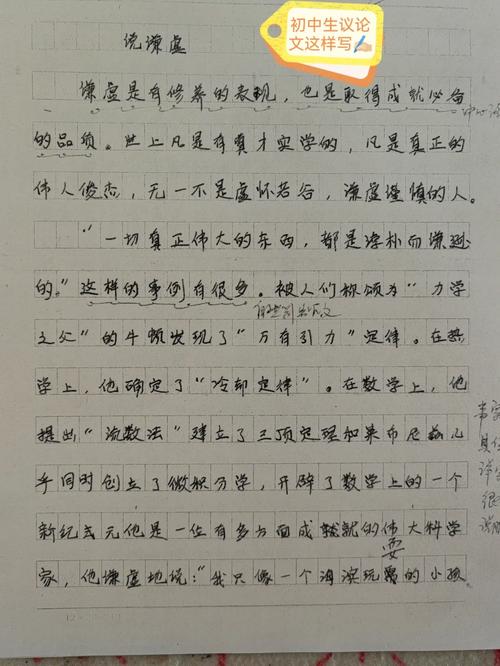 初中生议论
文这样写✍
说谦虚
谦虚是有修养的表现,也是取得成就必备
的品项。世上凡是有真才实学的,凡是真正的
伟人俊杰,无一不是虚怀若谷,谦虚谨慎的人。
"一切真正伟大的东西,都是淳朴而谦逊
的。"这样的事例有很多。被人们称颂为"力学
之父"的牛顿发现了"万有引力"定律。在热
学上,他确定了"冷却定律"。在数学上,他
提出"流数法"建立了三项定理和莱布尼兹几
乎同时创立了微积分学,开辟了数学上的一个
新纪元他是一位有多方面成就的伟大科学
家,他谦虚地说:"我只像一个海滨玩耍的小孩